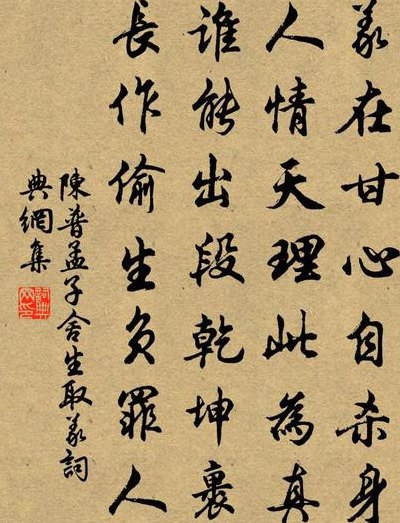 義在甘心自杀身
人情天理此為真
誰能出段乾坤裏
長作偷生負罪人
陳普孟子舍生取義詞
典網集